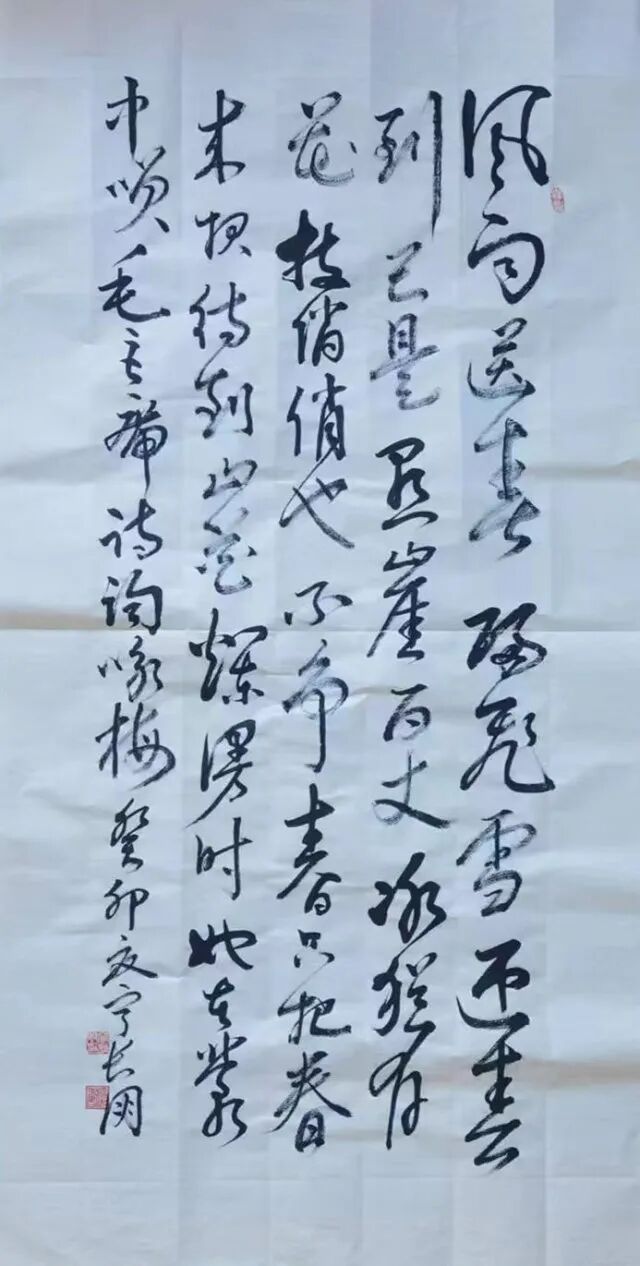 風雨送春歸飛雪迎春
到已是懸崖百丈冰猶有
花枝俏俏也不争春只把春
来报待到山花爛漫时她在叢
中咲毛主席诗词咏梅 癸卯夏宁长